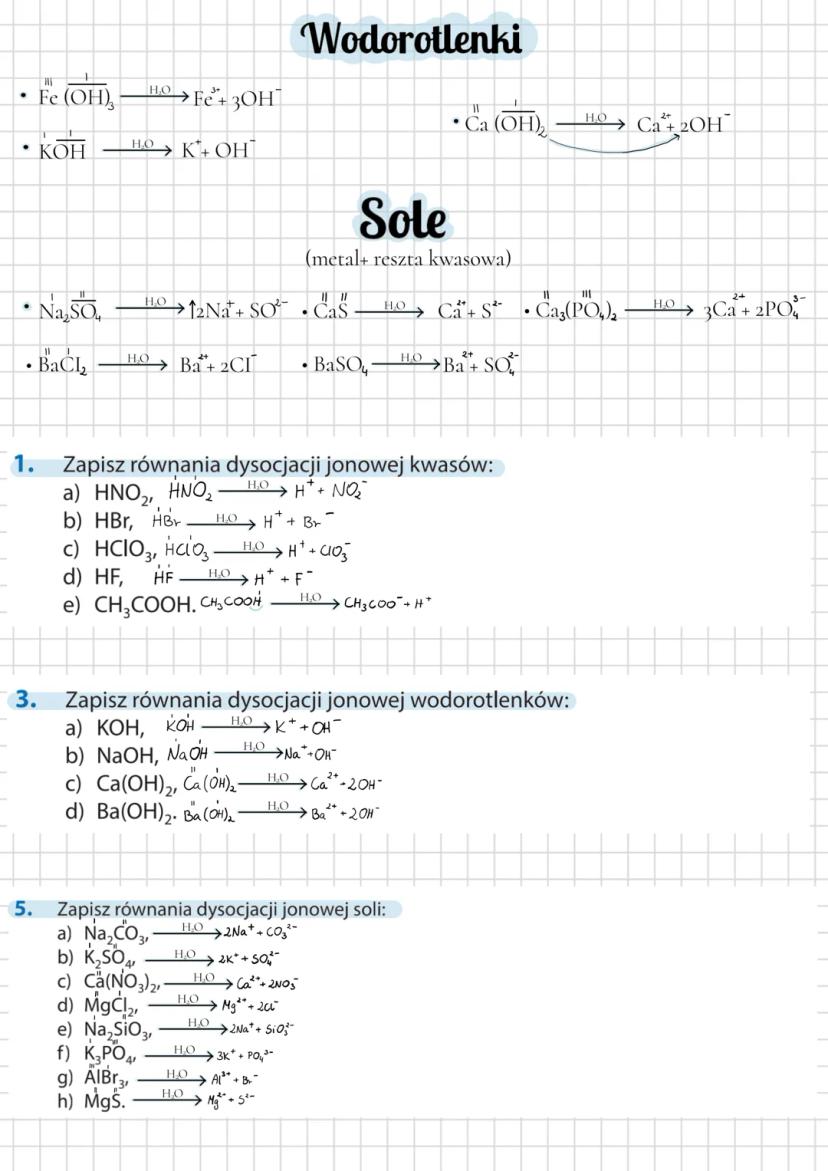 Wodorotlenki
• Fe (OH)₃ —H₂O→ Fe³⁺+ 3OH⁻
• Ca (OH)₂ —H₂O→ Ca²⁺+ 2OH⁻
• KOH —H₂O→ K⁺+ OH⁻
Sole
(metal+ reszta kwasowa)
• Na₂SO₄ —H₂O→ ↑2Na⁺+ SO²⁻ • CaS —H₂O→ Ca²⁺+ S²⁻ • Ca₃(PO₄)₂ —H₂O→ 3Ca²⁺ + 2PO₄³⁻
• BaCl₂ —H₂O→ Ba²⁺+ 2Cl⁻ • BaSO₄ —H₂O→ Ba²⁺+ SO₄²⁻
1. Zapisz równania dysocjacji jonowej kwasów:
a) HNO₂, HNO₂ —H₂O→ H⁺ + NO₂⁻
b) HBr, HBr —H₂O→ H⁺ + Br⁻
c) HClO₃, HClO₃ —H₂O→ H⁺ + ClO₃⁻
d) HF, HF —H₂O→ H⁺ + F⁻
e) CH₃COOH. CH₃COOH —H₂O→ CH₃COO⁻ + H⁺
3. Zapisz równania dysocjacji jonowej wodorotlenków:
a) KOH, KOH —H₂O→ K⁺ + OH⁻
b) NaOH, NaOH —H₂O→ Na⁺+OH⁻
c) Ca(OH)₂, Ca(OH)₂ —H₂O→ Ca²⁺ + 2OH⁻
d) Ba(OH)₂. Ba(OH)₂ —H₂O→ Ba²⁺ + 2OH⁻
5. Zapisz równania dysocjacji jonowej soli:
a) Na₂CO₃, —H₂O→ 2Na⁺ + CO₃²⁻
b) K₂SO₄, —H₂O→ 2K⁺ + SO₄²⁻
c) Ca(NO₃)₂, —H₂O→ Ca²⁺ + 2NO₃⁻
d) MgCl₂, —H₂O→ Mg²⁺ + 2Cl⁻
e) Na₂SiO₃, —H₂O→ 2Na⁺ + SiO₃²⁻
f) K₃PO₄, —H₂O→ 3K⁺ + PO₄³⁻
g) AlBr₃, —H₂O→ Al³⁺ + Br⁻
h) MgS. —H₂O→ Mg²⁺ + S²⁻